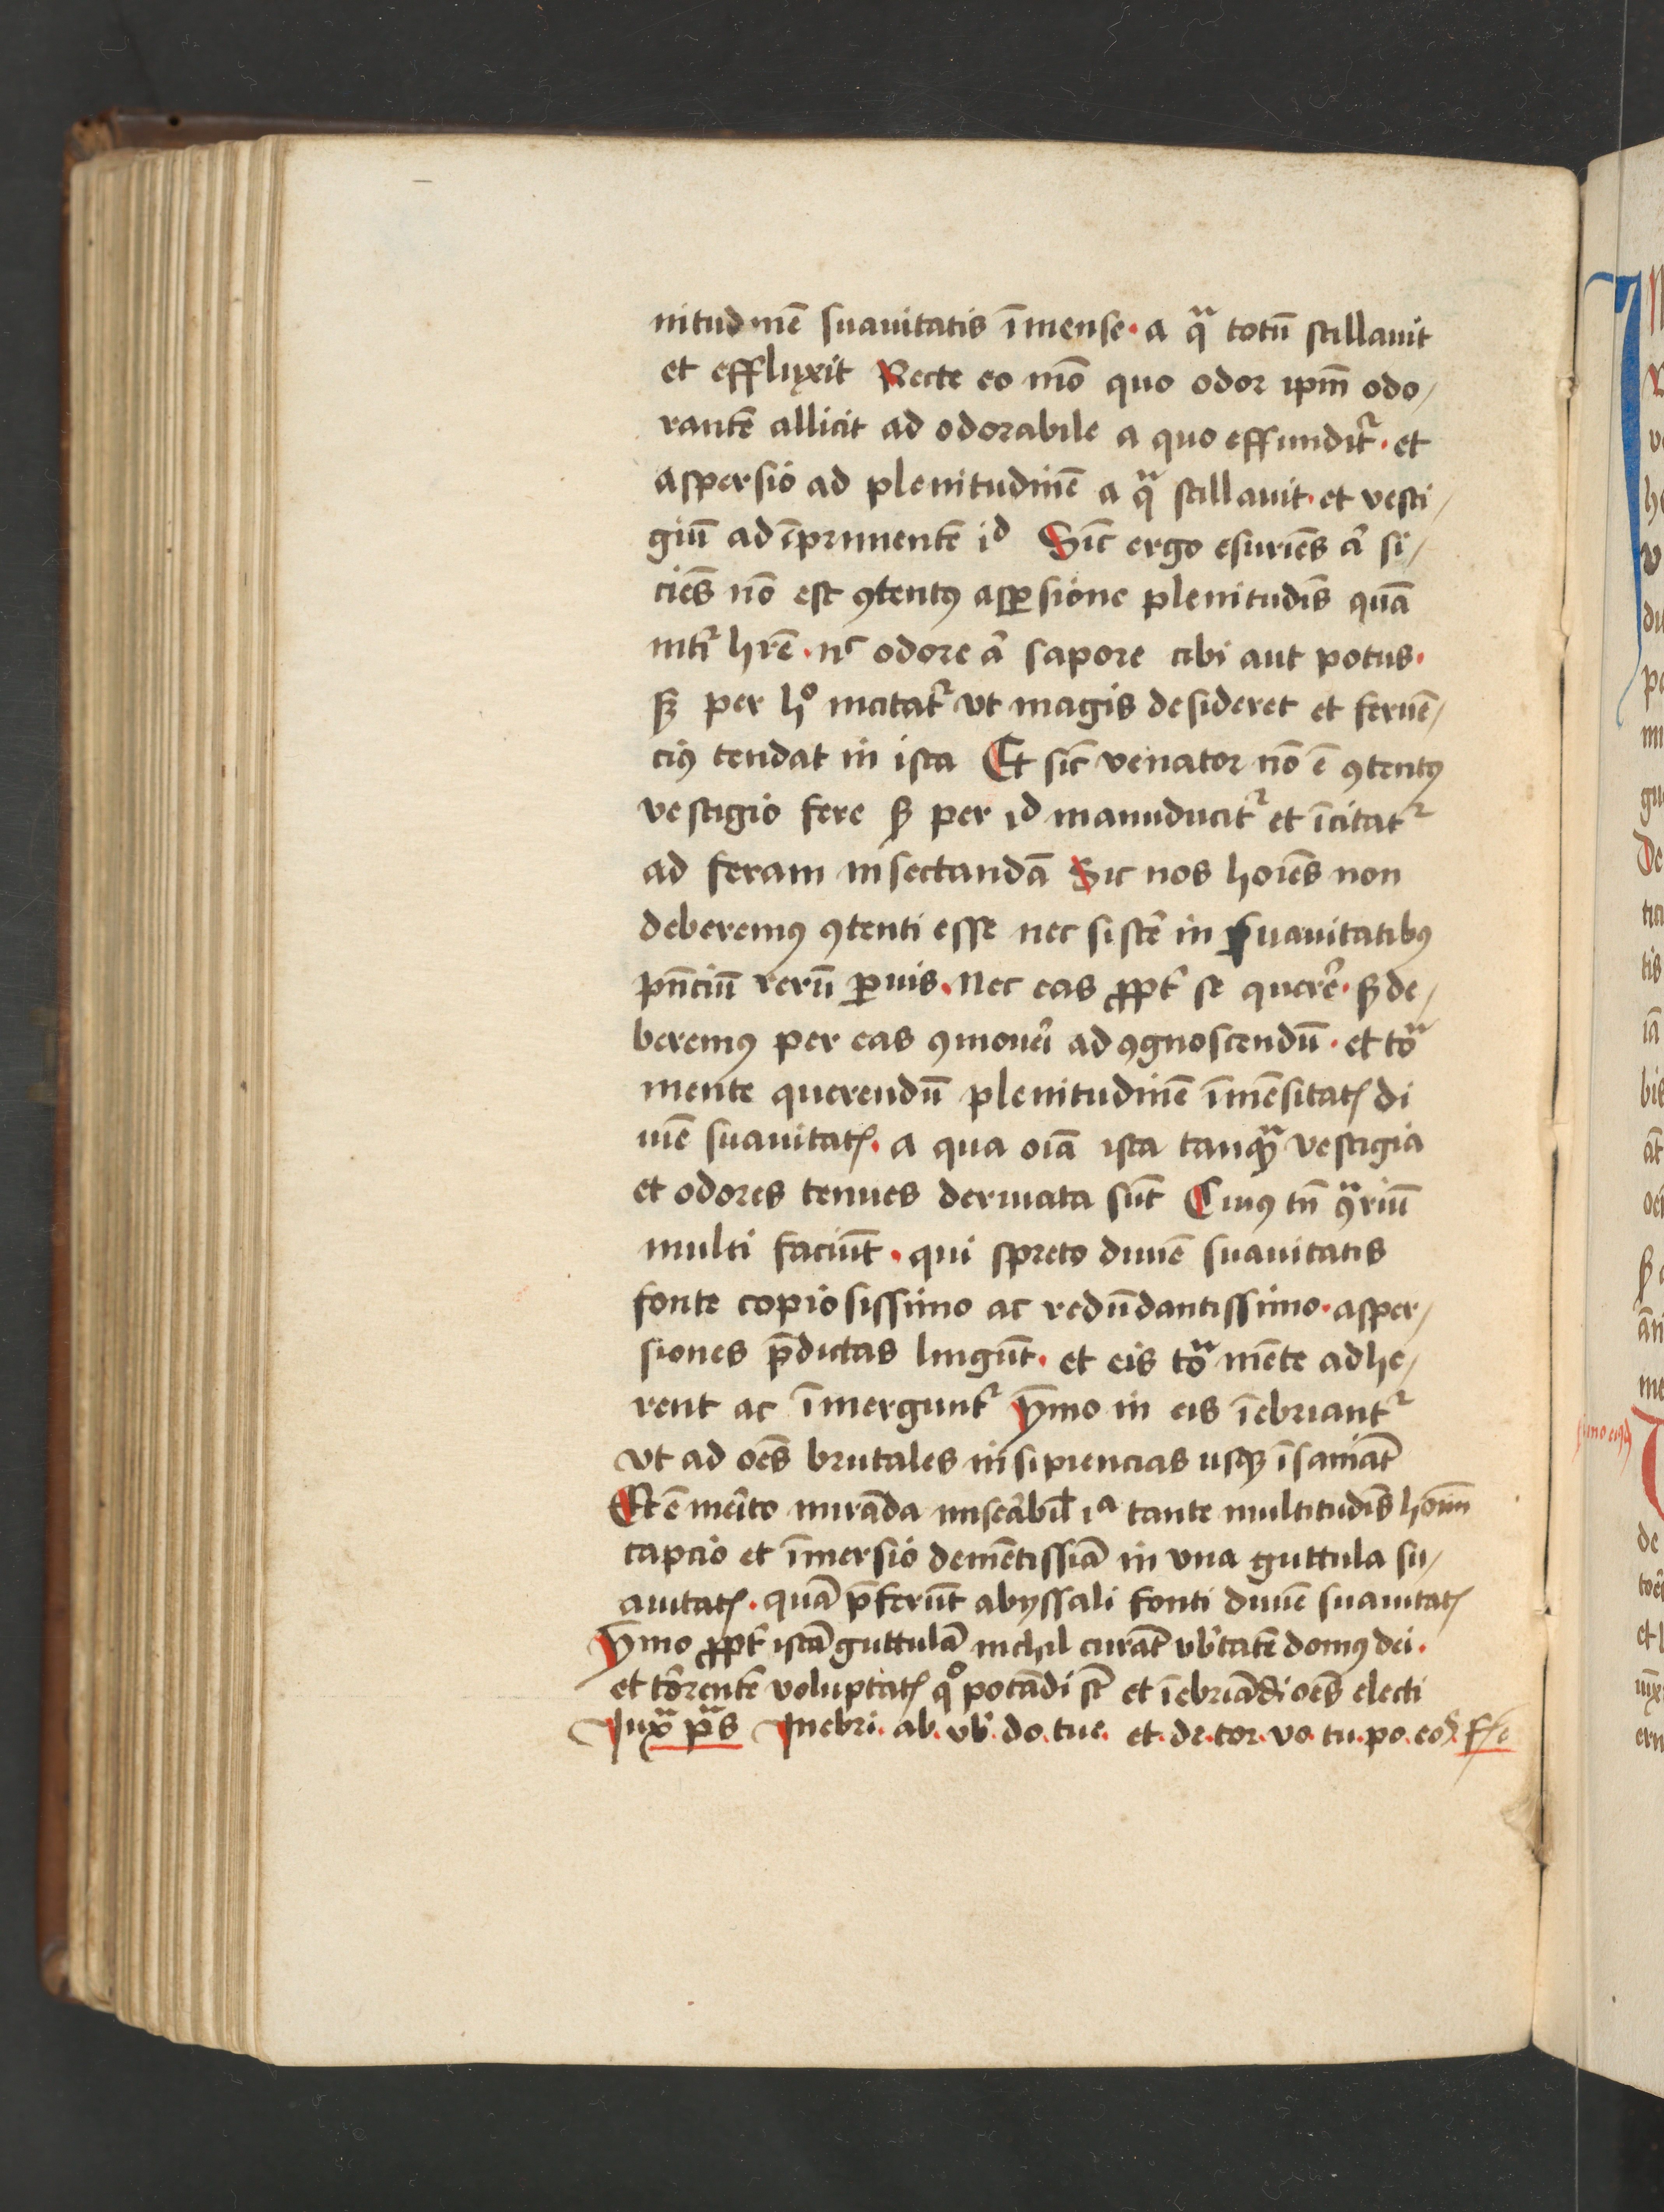 nitudinē suauitatis īmense · a qᵃ totū stillauit
et effluxit Recte eo mō quo odor ipm̄ odo/
rantē allicit ad odorabile a quo effundit᷑ · et
aspersio ad plenitudinē a qᵃ stillauit · et vesti/
giū ad īprimentē id Sic̄ ergo esuriēs aꝉ si/
ciēs nō est ꝯtentꝰ asꝑsione plenitudīs quā
nitiꝉ hr̄e · nᶜ odore aꝉ sapore cibi aut potus ·
sꝫ per hͦ incitat᷑ vt magis desideret et feruē/
ciꝰ tendat in ista Et sic̄ venator nō ē ꝯtentꝰ
vestigio fere sꝫ per id manuducit᷑ et īcitat᷑
ad feram insectandā Sic nos hoīes non
deberemꝰ ꝯtenti esse nec sistē in suauitatibꝰ
pn̄ciū rerū ꝑuis · Nec eas ꝓpt᷑ se querē · sꝫ de/
beremꝰ per eas ꝯmoueī ad ꝯgnoscendū · et toᵃ
mente querendū plenitudinē īmēsitatꝭ di
uīe suauitatꝭ · a qua oīa ista tanqᵃ vestigia
et odores tenues deriuata sūt Cuiꝰ tn̄ ꝯᵃriū
multi faciūt · qui spreto diuīe suauitatis
fonte copiosissimo ac redūdantissimo · asper/
siones p̄dictas lingūt · et eis toᵃ mēte adhe/
rent ac īmergunt᷑ ymmo in eis īebriant᷑
vt ad oēs brutales insipiencias usqꝫ īsaniāt
Et ē meīto mirāda miseābiꝉ iᵃ tante multitudīs hoīm
capcio et īmersio demētissīa in vna guttula su/
auitatꝭ · quā p̄ferūt abyssali fonti diuīe suauitatꝭ
ymmo ꝓpt᷑ istā guttulā nichil curāt vb̄tatē domꝰ dei ·
et torrentē voluptatꝭ qͦ potādi sͭ et īebriādi oēs electi
Juxᵃ pᵃs Inebri · ab · vb̄ · do · tue · et · de · tor · vo · tu · po · eoꝝ